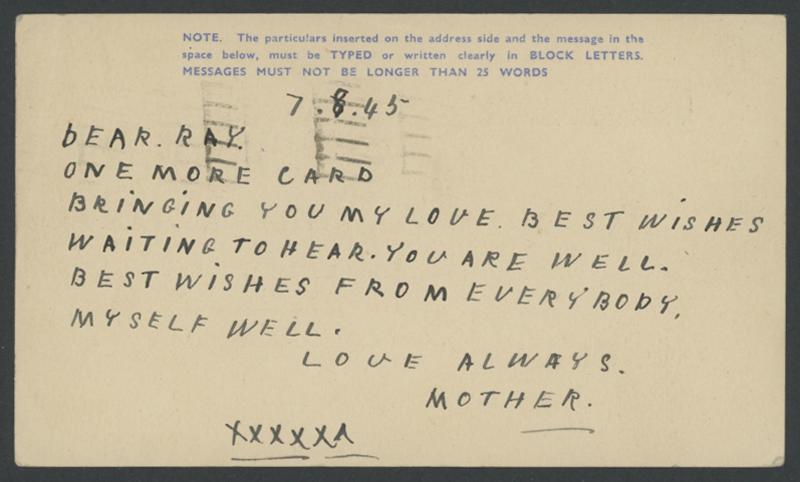 NOTE. The particulars inserted on the address side and the message in the
space below, must be TYPED or written clearly in BLOCK LETTERS.
MESSAGES MUST NOT BE LONGER THAN 25 WORDS
7.8.45
DEAR. RAY.
ONE MORE CARD
BRINGING YOU MY LOVE. BEST WISHES
WAITING TO HEAR. YOU ARE WELL.
BEST WISHES FROM EVERYBODY.
MYSELF WELL.
LOVE ALWAYS.
MOTHER.
XXXXXX